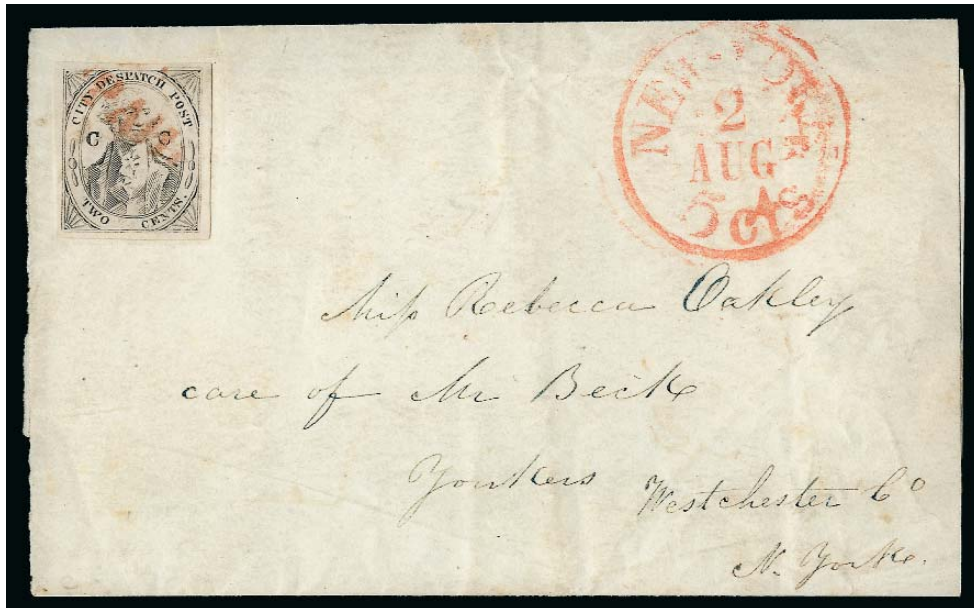 CITY DESPATCH POST
C C
TWO CENTS.
PAID
NEW-YORK
2
AUG
5 cts
Miſs Rebecca Oakley
care of Mr Beck
Yonkers Westchester Co
N. York.